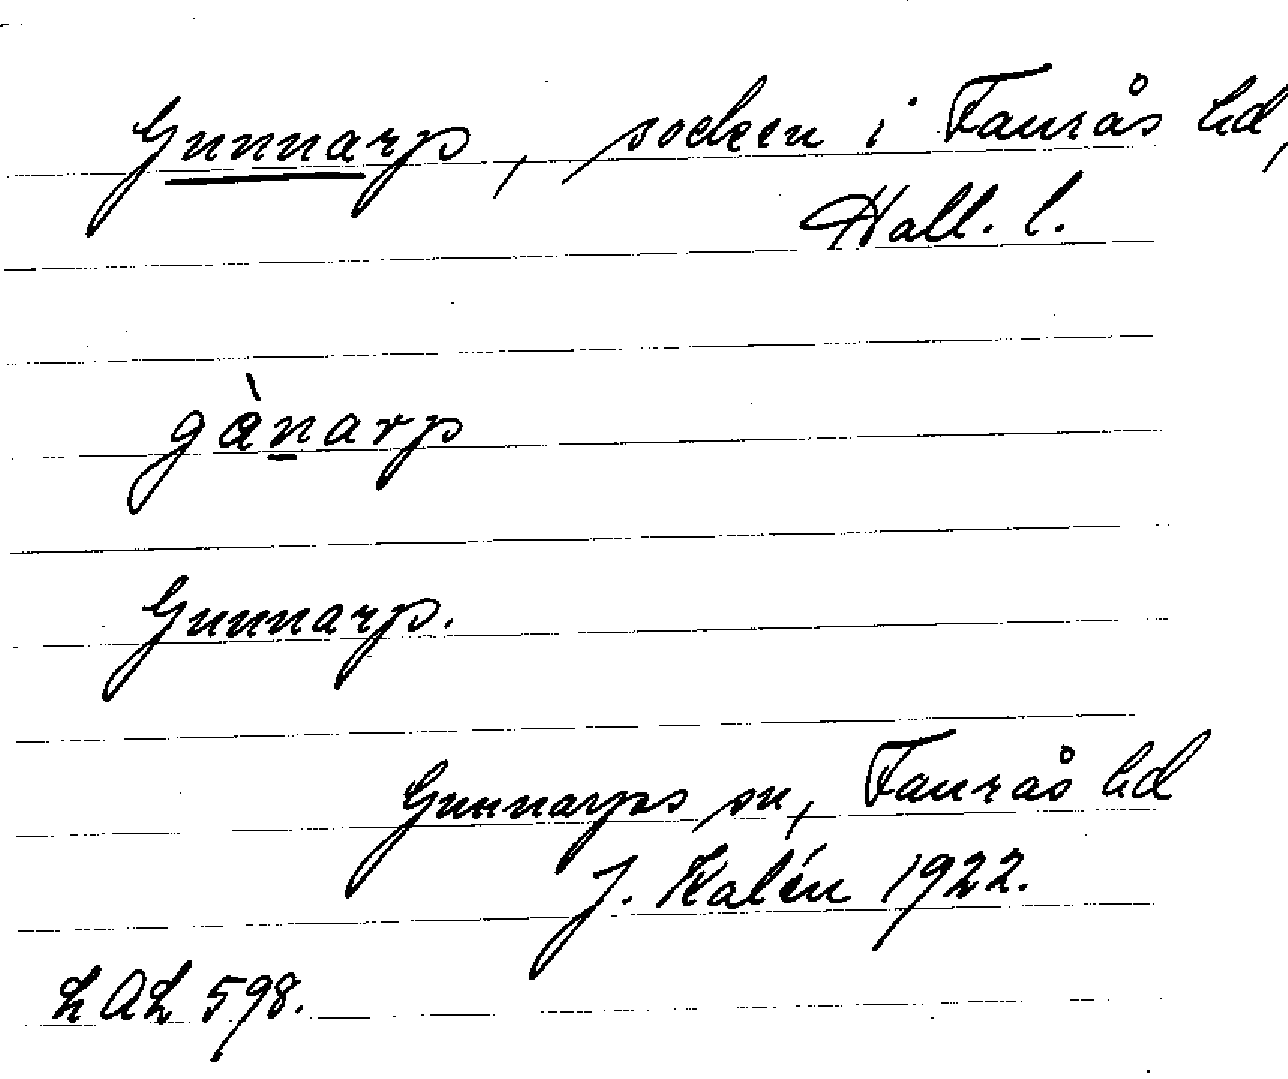 Gunnarp, socken i Faurås hd,
Hall. l.
gànarp
Gunnarp.
Gunnarps sn, Faurås hd
J. Kalén 1922.
LAL 598.